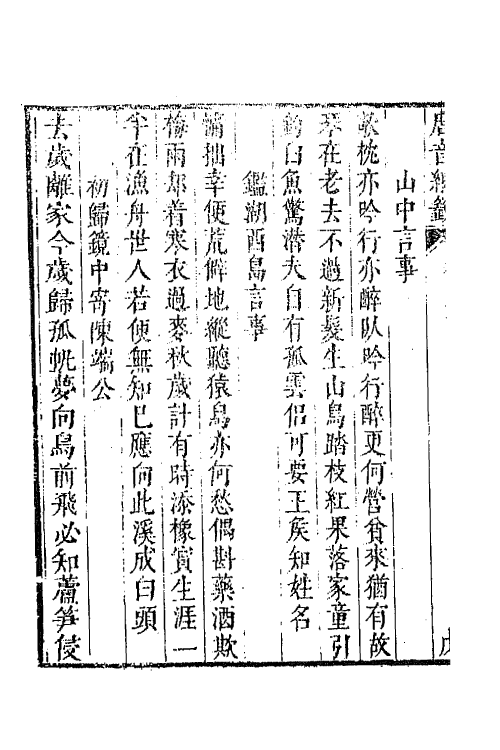 唐音統籤
山中言事
欹枕亦吟行亦醉臥吟行醉更何營貧來猶有故
琴在老去不過新髮生山鳥踏枝紅果落家童引
釣白魚驚潛夫自有孤雲侶可要王侯知姓名
鑑湖西島言事
慵拙幸便荒僻地縱聽猿鳥亦何愁偶斟藥酒欺
梅雨却着寒衣過麥秋歲計有時添橡實生涯一
半在漁舟世人若便無知己應向此溪成白頭
初歸鏡中寄陳端公
去歲離家今歲歸孤帆夢向鳥前飛必知蘆筍侵
戊